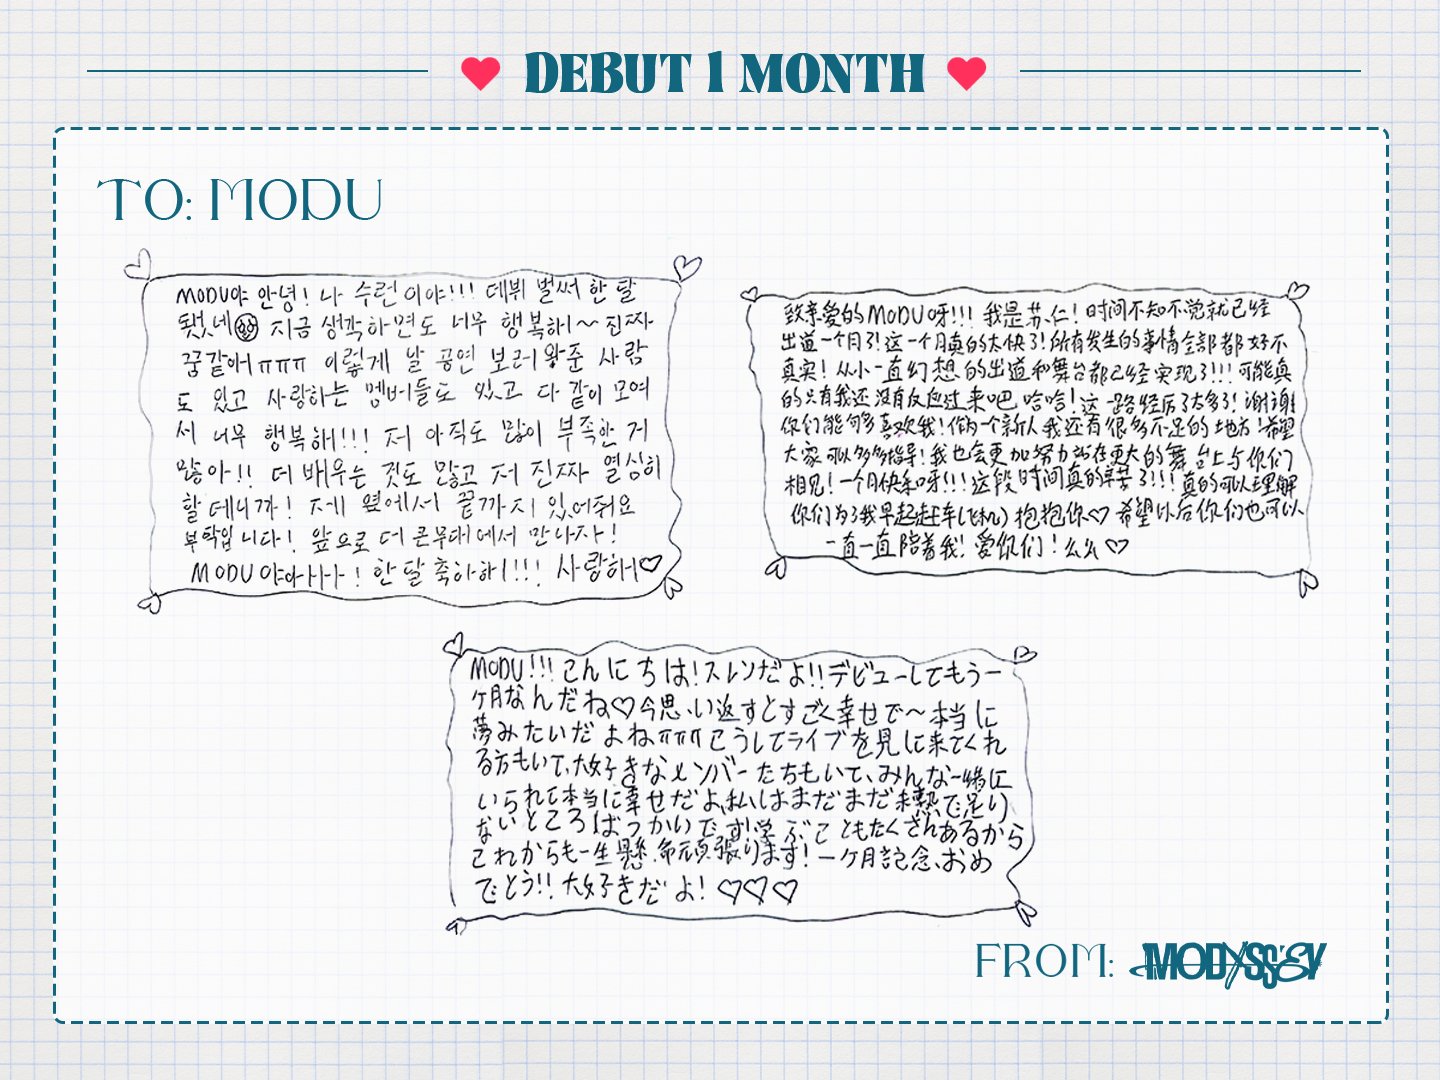 DEBUT 1 MONTH
TO: MODU
MODU야 안녕! 나 수런이야!!! 데뷔 벌써 한 달
됐네 지금 생각하면도 너무 행복해~ 진짜
꿈같애ㅠㅠㅠ 이렇게 날 공연 보러 왕준 사람
도 있고 사랑하는 멤버들도 있고 다 같이 모여
서 너무 행복해!!! 저 아직도 많이 부족한 거
많아!! 더 배우는 것도 많고 저 진짜 열심히
할 테니까! 제 옆에서 끝까지 있어줘요
부탁입니다! 앞으로 더 큰무대에서 만나자!
MODU야아아아! 한 달 축하해!!! 사랑해♡
致亲爱的MODU呀!!! 我是苏仁! 时间不知不觉就已经
出道一个月了!这一个月真的太快了!所有发生的事情全部都好不
真实! 从小一直幻想的出道和舞台都已经实现了!!! 可能真
的只有我还没有反应过来吧 哈哈! 这一路经历了太多了! 谢谢
你们能够喜欢我! 做为一个新人我还有很多不足的地方!希望
大家可以多多指导! 我也会更加努力站在更大的舞台上与你们
相见! 一个月快乐呀!!! 这段时间真的辛苦了!!! 真的可以理解
你们为了我早起赶车(飞机) 抱抱你♡ 希望以后你们也可以
一直一直陪着我! 爱你们! 么么♡
MODU!!! こんにちは!スレンだよ!!デビューしてもう一
ケ月なんだね♡今思い返すとすごく幸せで~本当に
夢みたいだよねㅠㅠㅠこうしてライブを見に来てくれ
る方もいて、大好きなメンバーたちもいて、みんな一緒に
いられて本当に幸せだよ、私はまだまだ未熟で足り
ないところばっかりで、学ぶこともたくさんあるから
これからも一生懸命頑張ります!一ケ月記念、おめ
でとう!! 大好きだよ! ♡♡♡
FROM: MODYSSEY